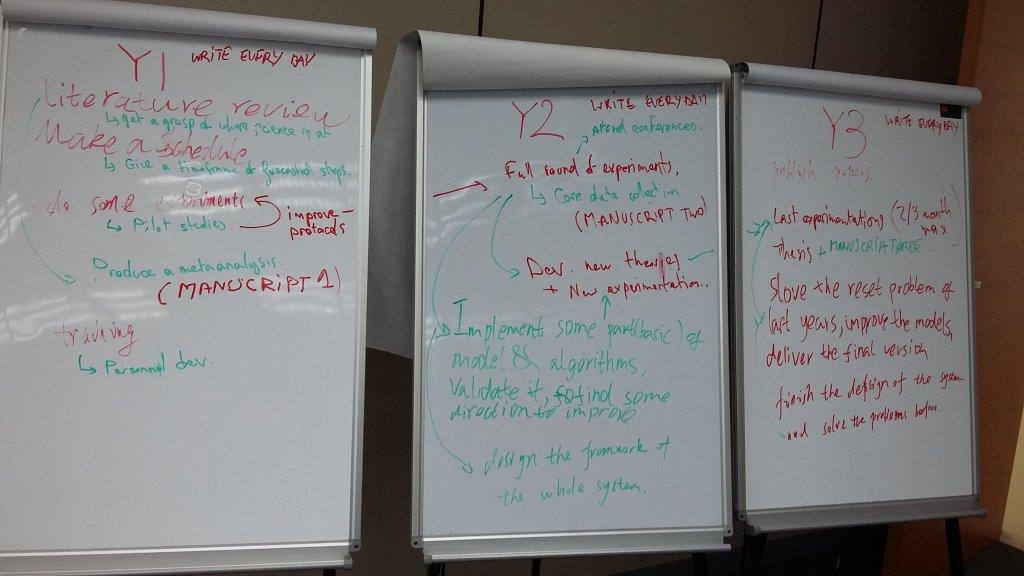 Y1 WRITE EVERY DAY
Literature review
↳ get a grasp of where science is at
Make a schedule
↳ Give a timeframe of forecasted steps.
do some experiments
↳ Pilot studies
improve-
protocols
Produce a metaanalysis.
(MANUSCRIPT 1)
training
↳ Personnal dev.
Y2 WRITE EVERYDAY
Attend conferences.
Full round of experiments,
↳ Core data collection
(MANUSCRIPT TWO)
Dev. new theories
+ New experimentation..
Implement some part(basic) of
model & algorithms,
validate it, to find some
direction to improve
design the framwork of
the whole system.
Y3 WRITE EVERYDAY
publish papers.
Last experimentations (2/3 month
max)
Thesis + MANUSCRIPT THREE
Slove the reset problem of
last years, improve the models,
deliver the final version
finish the defsign of the system
and solve the problems before.